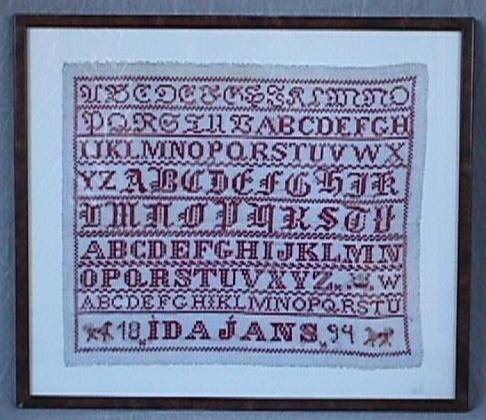 ABCDEFGHIKLMNO
PQRSTUVABCDEFGH
IJKLMNOPQRSTUVWX
YZABCDEFGHIK
LMNOPQRSTU
ABCDEFGHIJKLMN
OPQRSTUVXYZ W
ABCDEFGHIKLMNOPQRSTU
18 IDA JANS 94